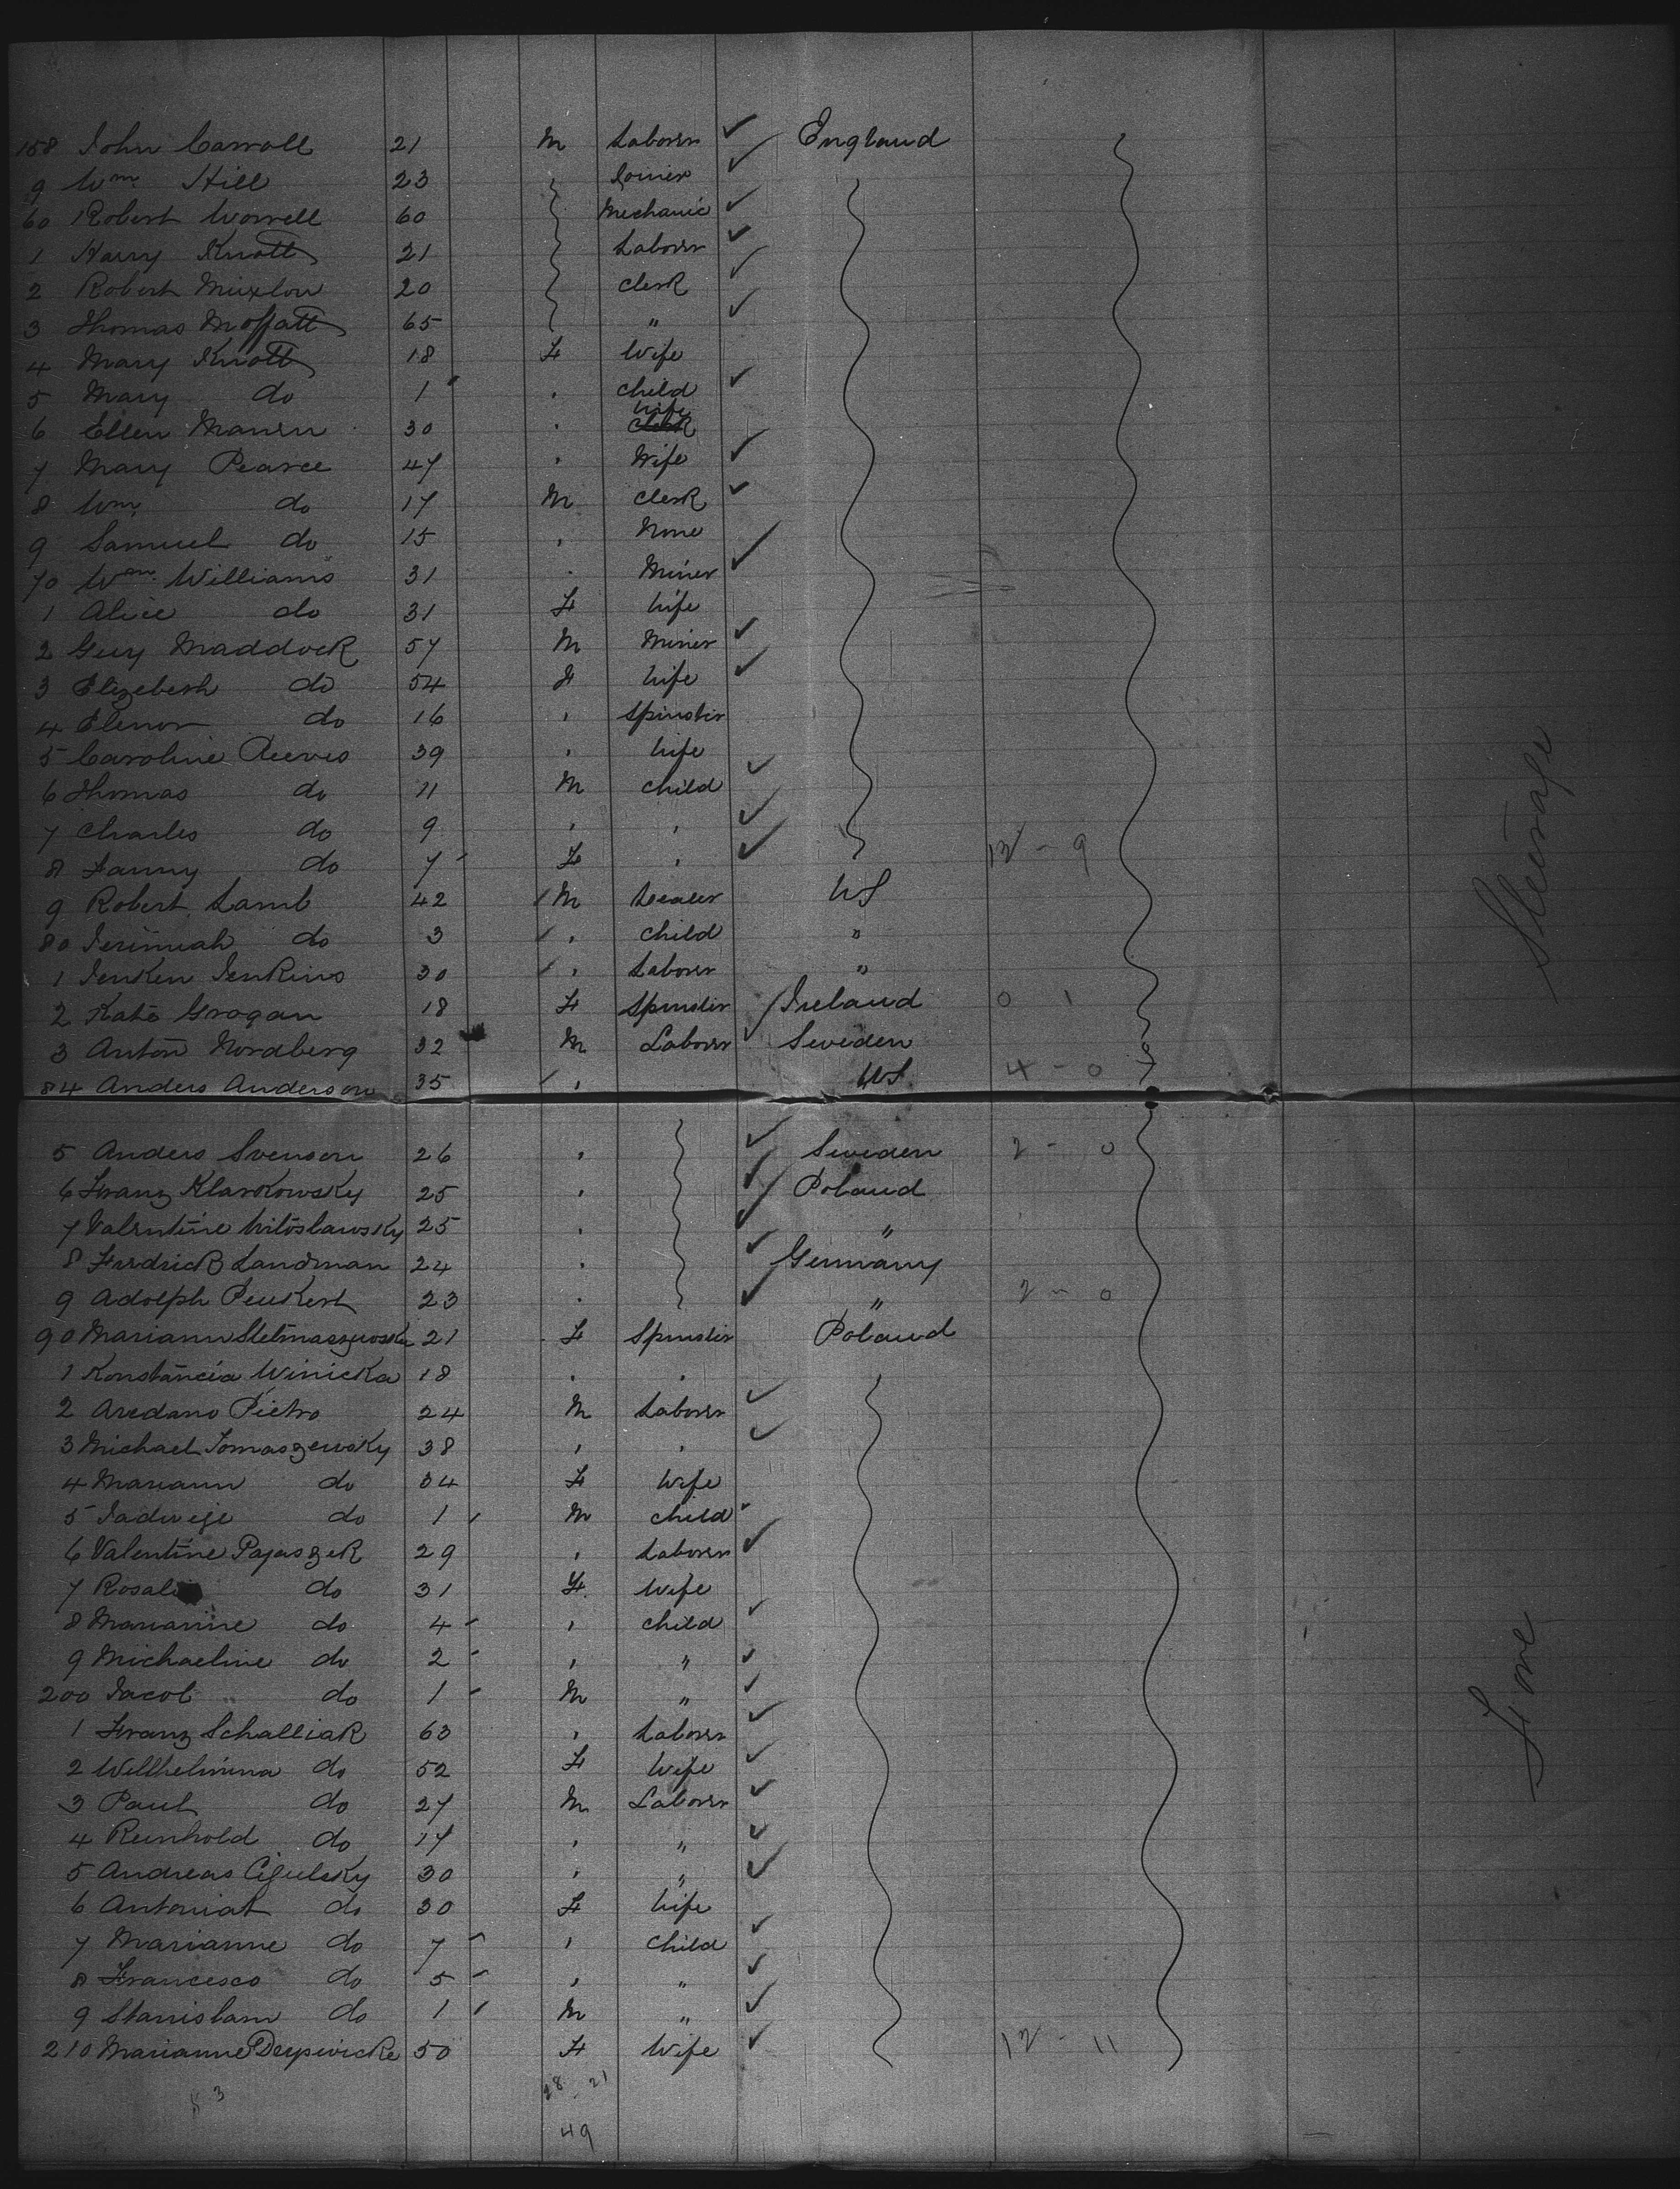 158 John Carroll 21 M Laborer ✓ England
9 Wm Hill 23 Joiner ✓
60 Robert Worrell 60 Mechanic ✓
1 Harry Knott 21 Laborer ✓
2 Robert Muxlow 20 Clerk ✓
3 Thomas Moffatt 65 " ✓
4 Mary Knott 18 F Wife
5 Mary do 1 child ✓
6 Ellen 30 wife
7 Mary Pearce 47 Wife ✓
8 Wm do 17 M Clerk ✓
9 Samuel do 15 None
70 Wm Williams 31 Miner ✓
1 Alice do 31 F wife
2 Guy Maddock 57 M Miner ✓
3 Elizebesh do 54 F wife ✓
4 Elenor do 16 Spinster
5 Caroline Reeves 39 wife
6 Thomas do 11 M child ✓
7 Charles do 9 ✓
8 Fanny do 7 F ✓ 12 - 9
9 Robert Lamb 42 M US
80 Jerimiah do 3 child "
1 Jenken Jenkins 30 Laborer "
2 Kate Grogan 18 F Spinster Ireland 0 1
3 Anton Nordberg 32 M Laborer ✓ Sweden
84 Anders Anderson 35 US 4 - 0
5 Anders Svenson 26 ✓ Sweden 2 - 0
6 Franz Klarkowsky 25 ✓ Poland
7 Valentine Witoslawsky 25 ✓ "
8 Fredrick Landman 24 ✓ Germany
9 Adolph Peukert 23 ✓ " 2 - 0
90 Mariann 21 F Spinster Poland
1 Konstancia Winicka 18
2 Avedano Pietro 24 M Laborer ✓
3 Michael Tomaszewsky 38 ✓
4 Mariann do 34 F Wife
5 Jadwige do 1 M child
6 Valentine Pajaszek 29 Laborer ✓
7 do 31 F Wife
8 Marianne do 4 child ✓
9 Michaeline do 2 " ✓
200 Jacob do 1 M " ✓
1 Franz Schalliak 63 Laborer ✓
2 Willhelmina do 52 F Wife ✓
3 Paul do 27 M Laborer ✓
4 Reinhold do 17 " ✓
5 Andreas Cigulsky 30 " ✓
6 Antoniat do 30 F Wife
7 Marianne do 7 child ✓
8 Francesco do 5 " ✓
9 Stanislam do 1 M " ✓
210 Marianne 50 F Wife ✓ 12 - 11
28 21
49
Steerage
Fore